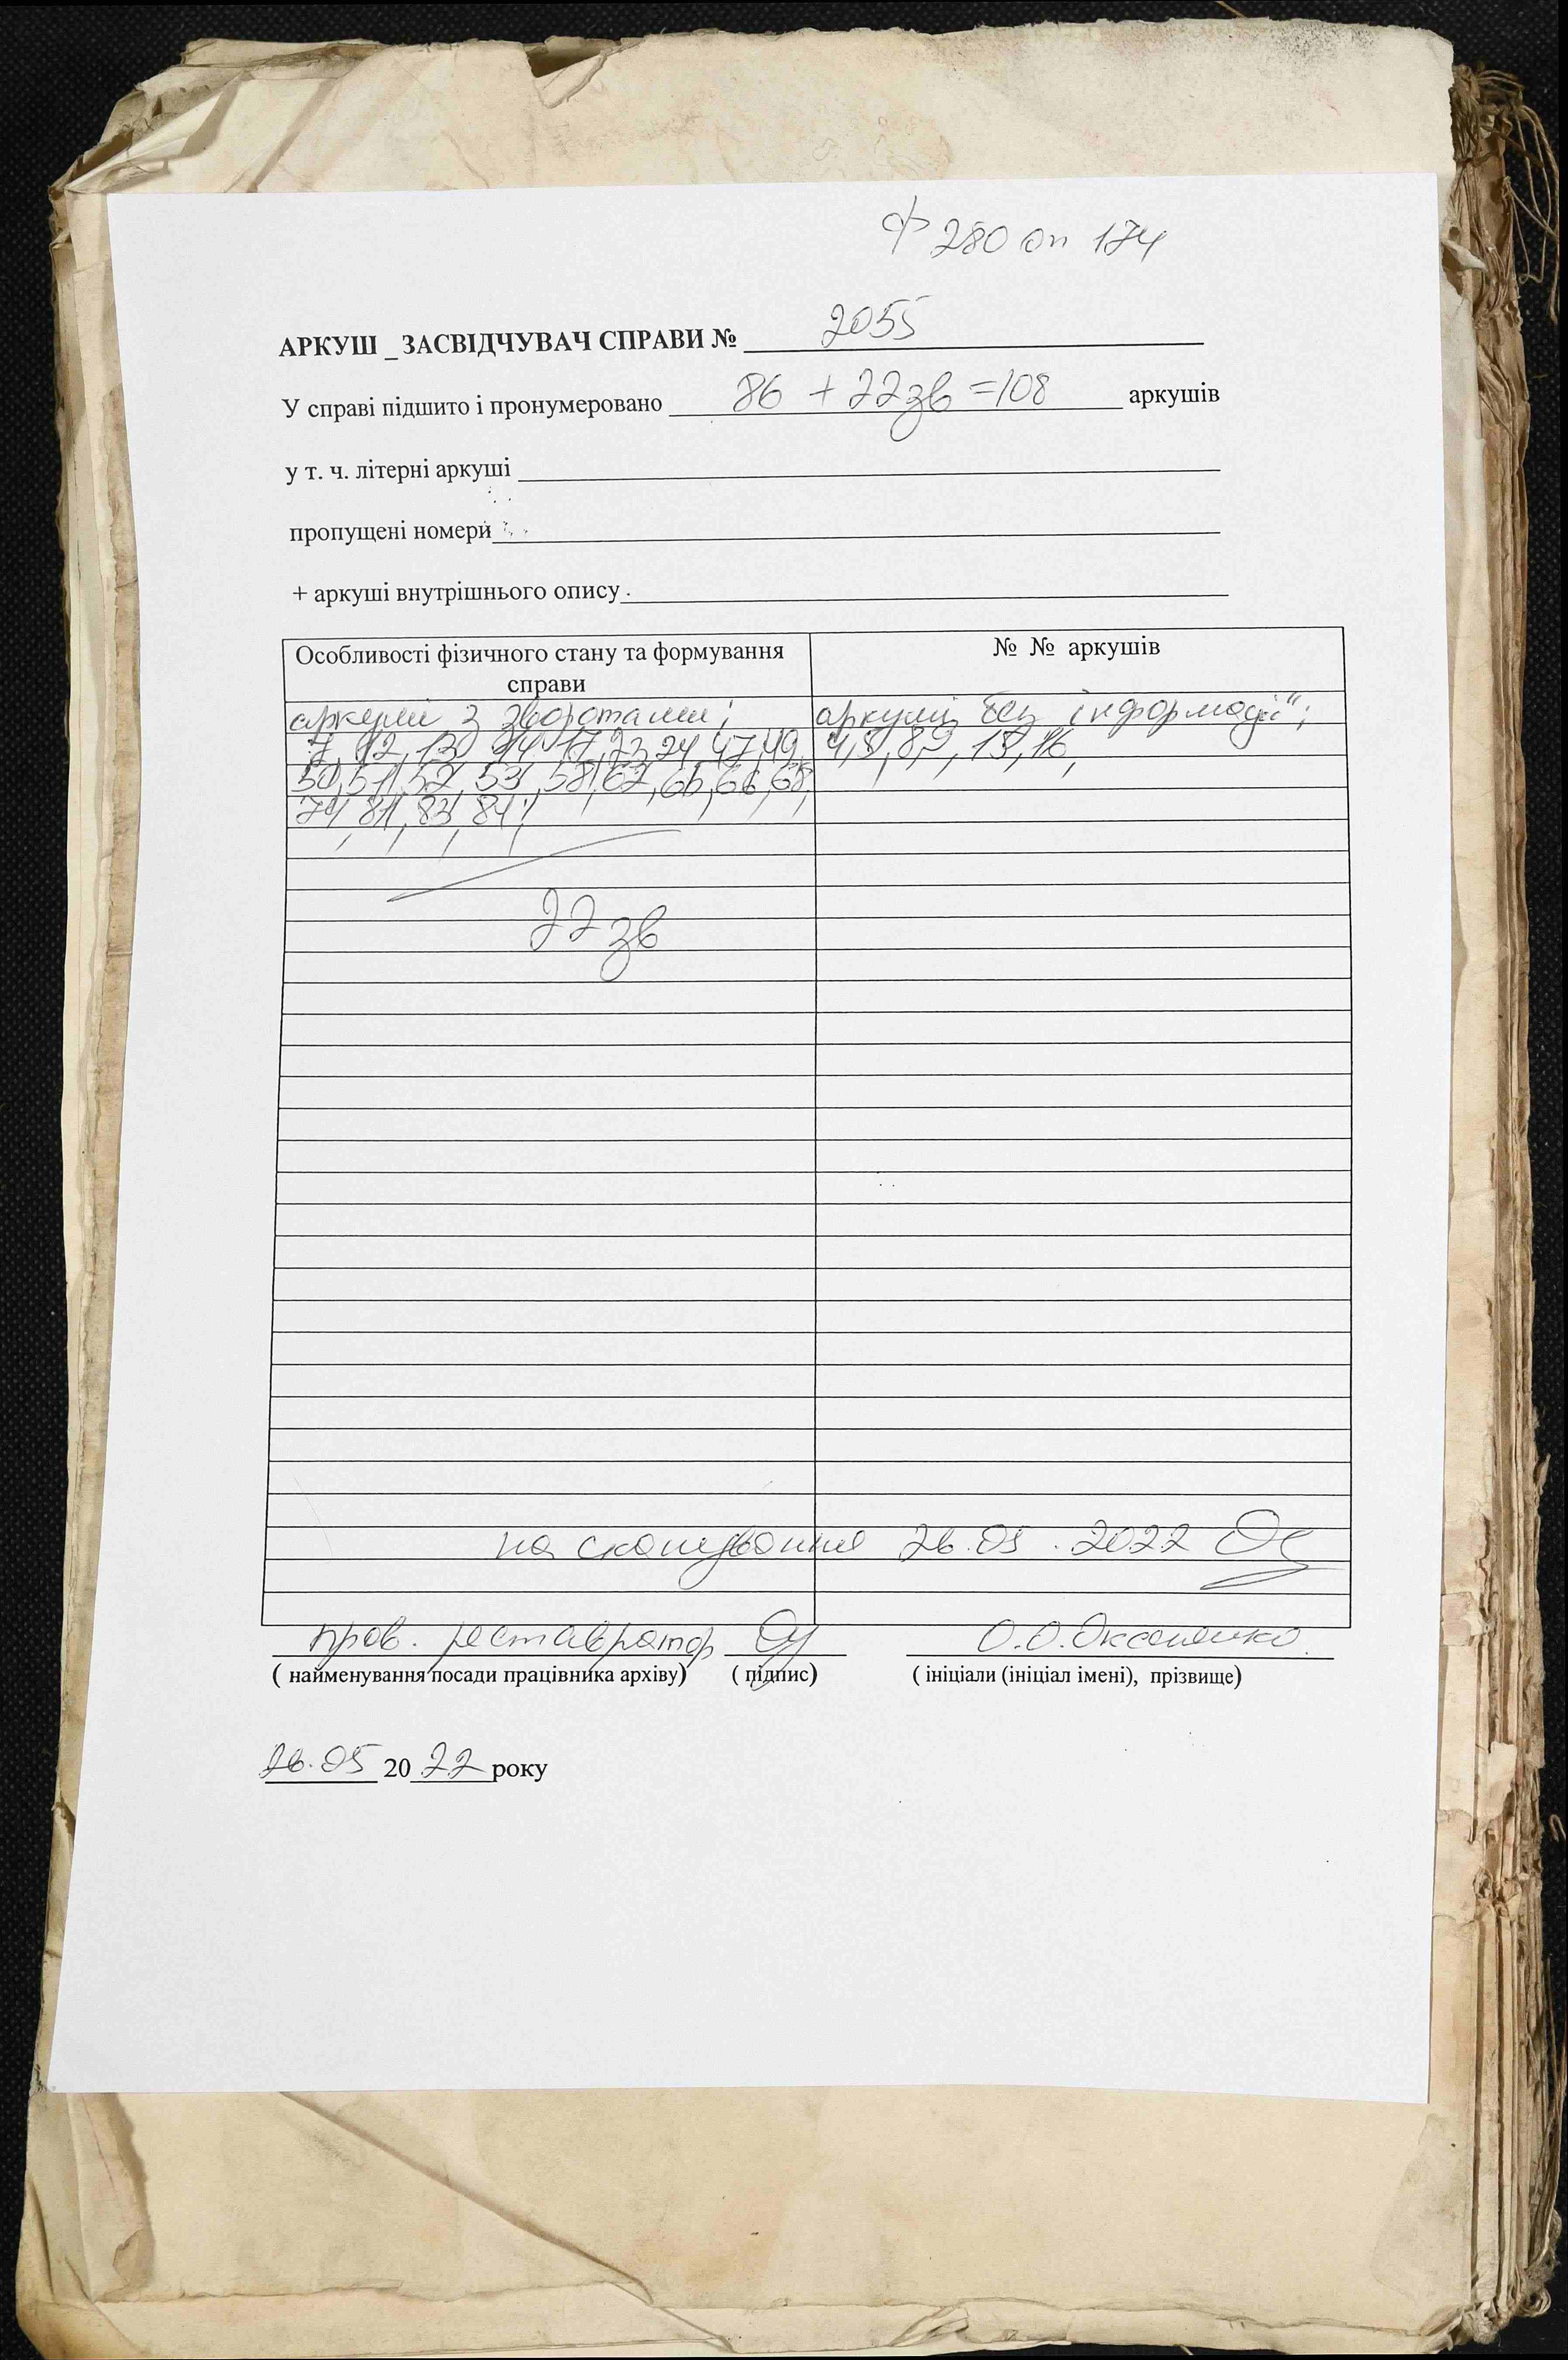 ф 280 оп 174
АРКУШ _ ЗАСВІДЧУВАЧ СПРАВИ № 2055
У справі підшито і пронумеровано 86 + 22 зв = 108 аркушів
у т. ч. літерні аркуші
пропущені номери
+ аркуші внутрішнього опису
Особливості фізичного стану та формування справи
№ № аркушів
аркуші з зворотами;
аркуші без інформації;
7, 12, 13, 14, 17, 23, 24, 47, 49,
4, 5, 8, 9, 15, 16,
50, 51, 52, 53, 58, 62, 65, 66, 68,
74, 81, 83, 84;
22 зв
на сканування 26.05.2022
пров. реставратор О.О.Оксаненко
( найменування посади працівника архіву) ( підпис) ( ініціали (ініціал імені), прізвище)
26.05 2022 року